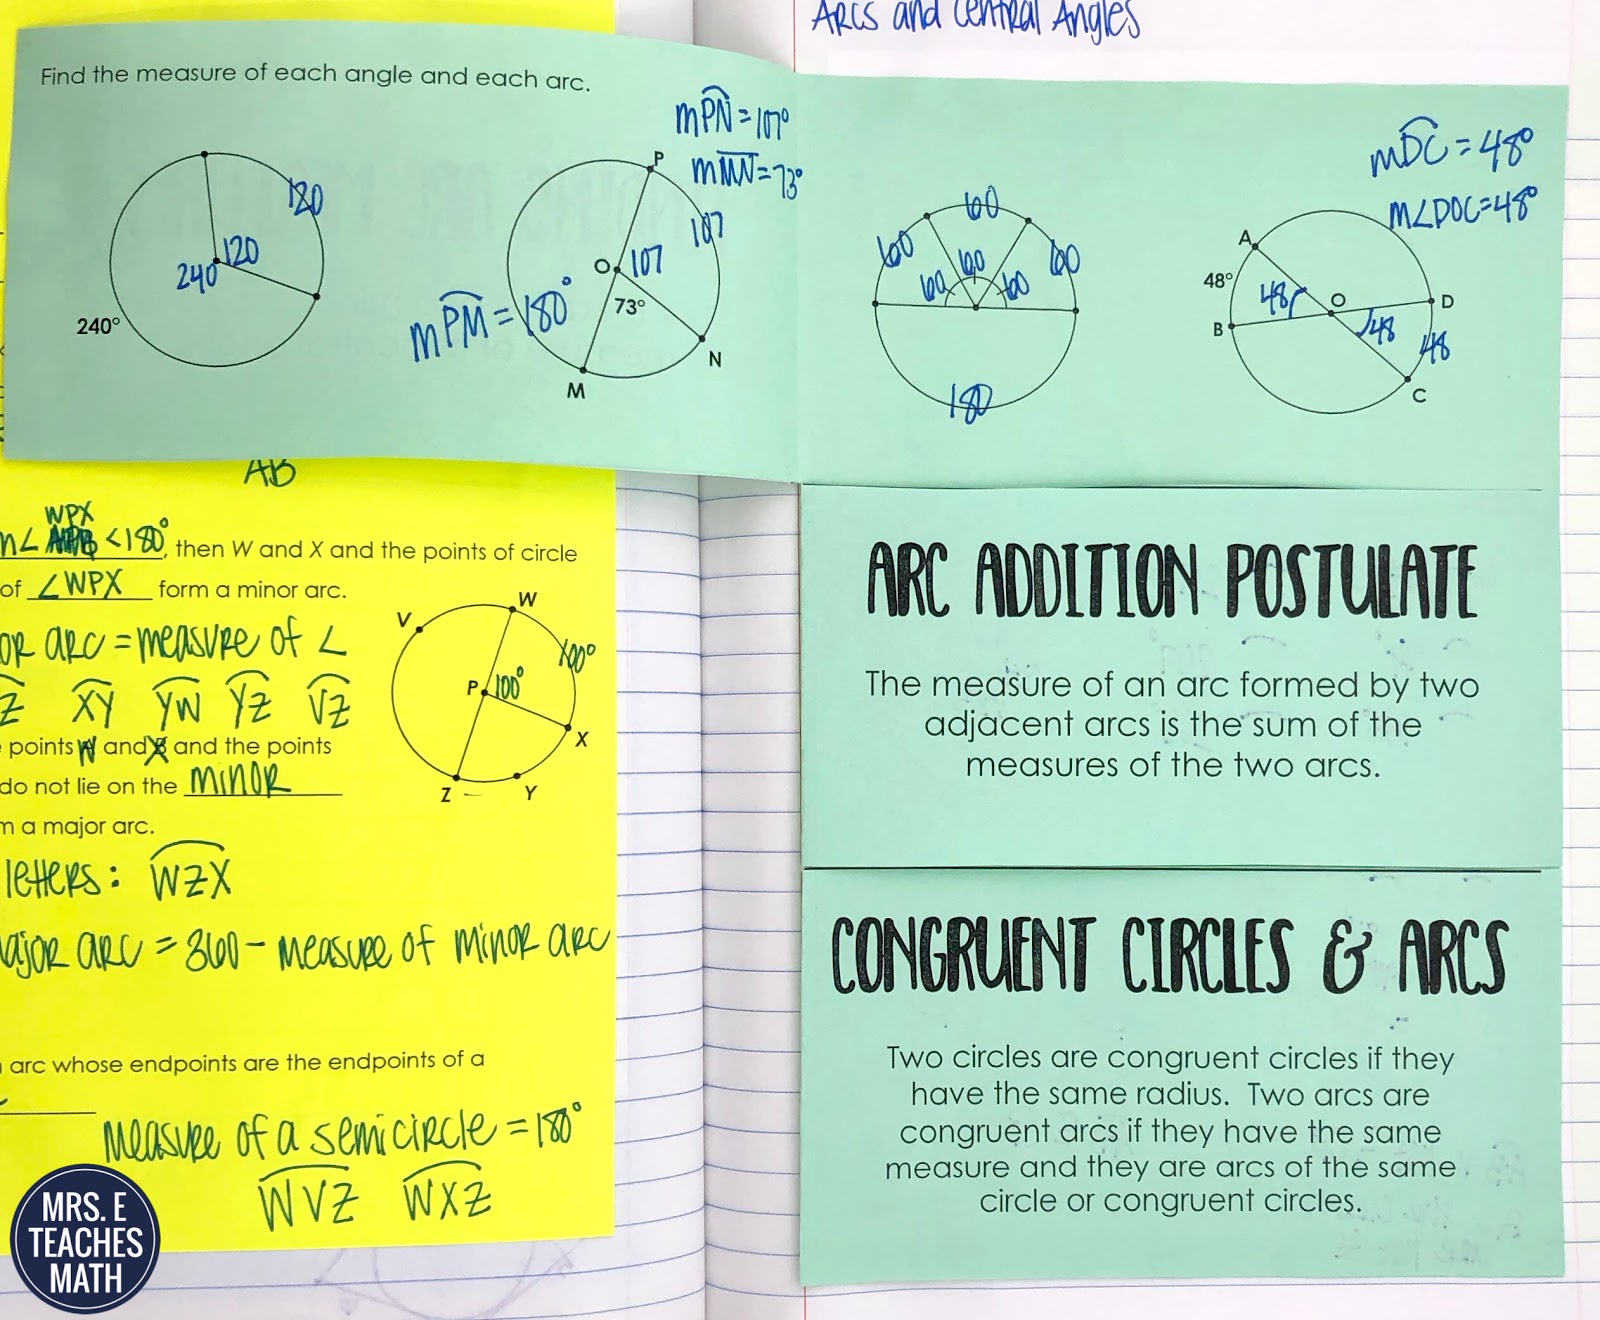 Arcs and Central Angles
Find the measure of each angle and each arc.
120
120
240
240°
mPN = 107°
mMN = 73°
P
107
O
107
73°
mPM = 180°
N
M
60
60
60
60
60
60
180
mDC = 48°
m∠DOC = 48°
A
48°
48
O
D
B
48
48
C
AB
WPX
m∠ <180°, then W and X and the points of circle
of ∠WPX form a minor arc.
or arc = measure of ∠
Z XY YW YZ VZ
points W and X and the points
do not lie on the minor
m a major arc.
letters: WZX
ajor arc = 360 - measure of minor arc
arc whose endpoints are the endpoints of a
measure of a semicircle = 180°
WVZ WXZ
V
W
100°
P
100°
X
Z
Y
ARC ADDITION POSTULATE
The measure of an arc formed by two
adjacent arcs is the sum of the
measures of the two arcs.
CONGRUENT CIRCLES & ARCS
Two circles are congruent circles if they
have the same radius. Two arcs are
congruent arcs if they have the same
measure and they are arcs of the same
circle or congruent circles.
MRS. E
TEACHES
MATH